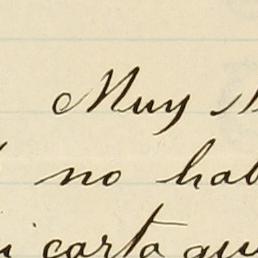 Muy
no hab
carta que